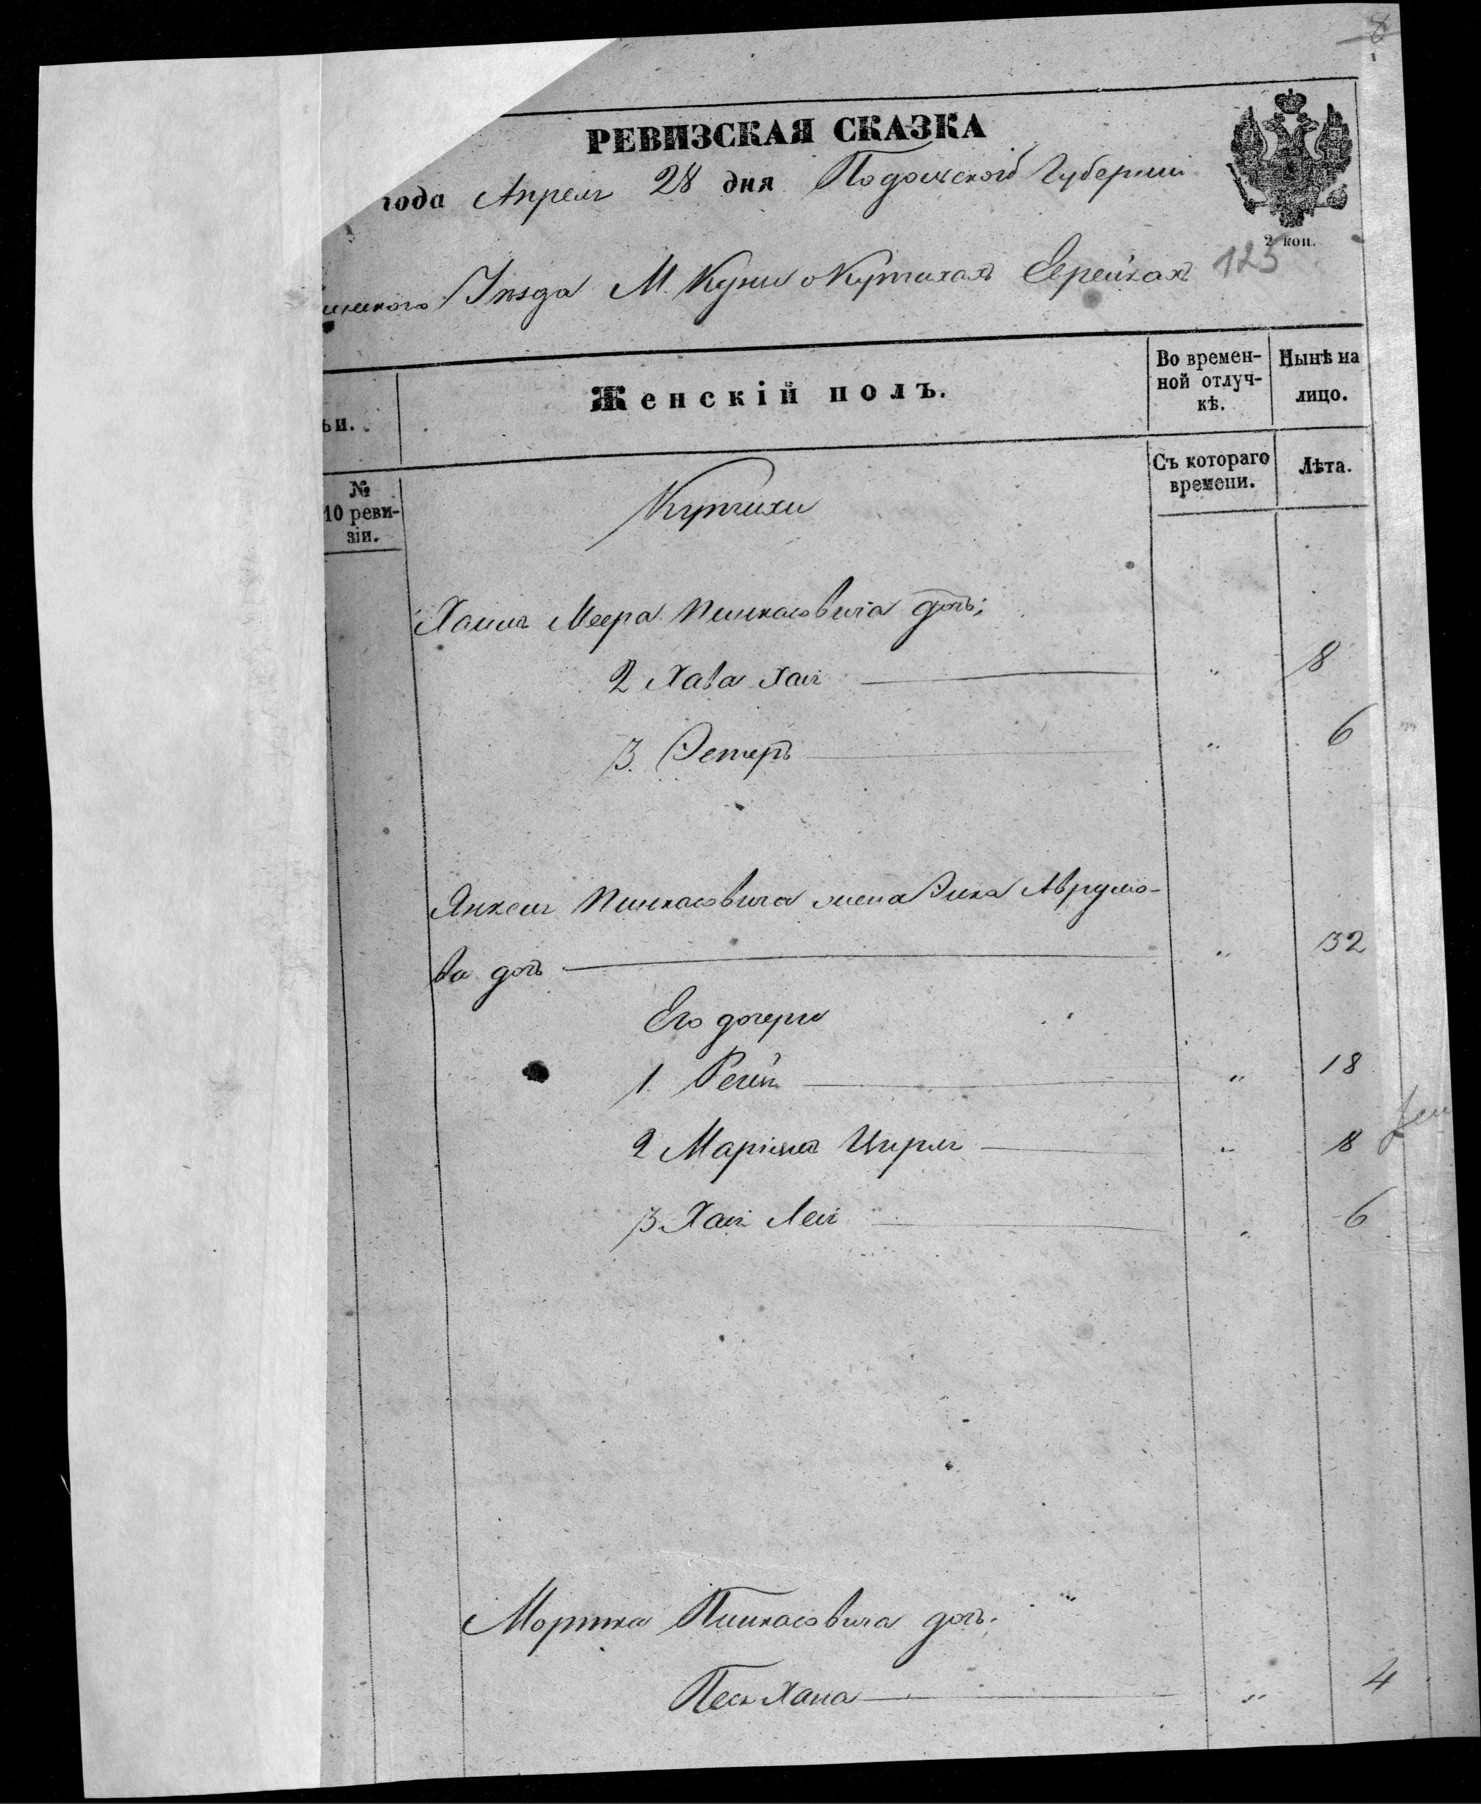 8
РЕВИЗСКАЯ СКАЗКА
года Апреля 28 дня Подольской Губернии
2 коп.
Уѣзда М. Куни о Купчихахъ Еврейкахъ 125
ьи.
Женскій полъ.
Во времен-
ной отлуч-
кѣ.
Нынѣ на
лицо.
№
10 реви-
зіи.
Съ котораго
времени.
Лѣта.
Купчихи
Хаима Меера Пинкасовича дочь:
2 Хава Хая " 8
3. Эстеръ " 6
Янкеля Пинкасовича жена Аврумо-
ва дочь " 32
Его дочери
1. " 18
2 Маріяма Цирля " 8
3. Хая Лея " 6
Мортка Пинкасовича дочь. "
Песя Хана " 4